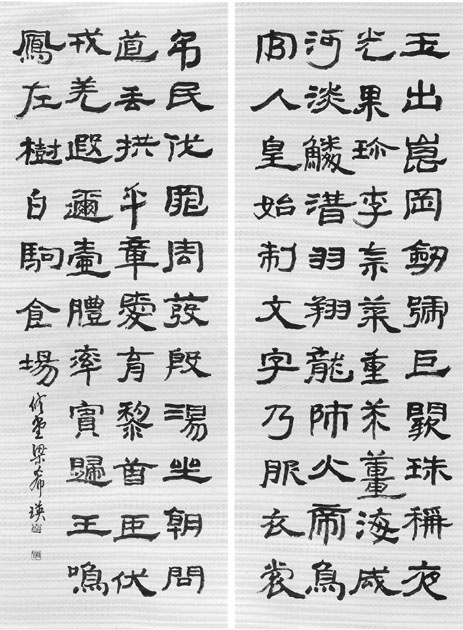 玉出崑岡劒號巨闕珠稱夜
光果珍李柰菜重芥薑海咸
河淡鱗潛羽翔龍師火帝鳥
官人皇始制文字乃服衣裳
弔民伐罪周發殷湯坐朝問
道垂拱平章愛育黎首臣伏
戎羌遐邇壹體率賓歸王鳴
鳳在樹白駒食場 梁希瑛